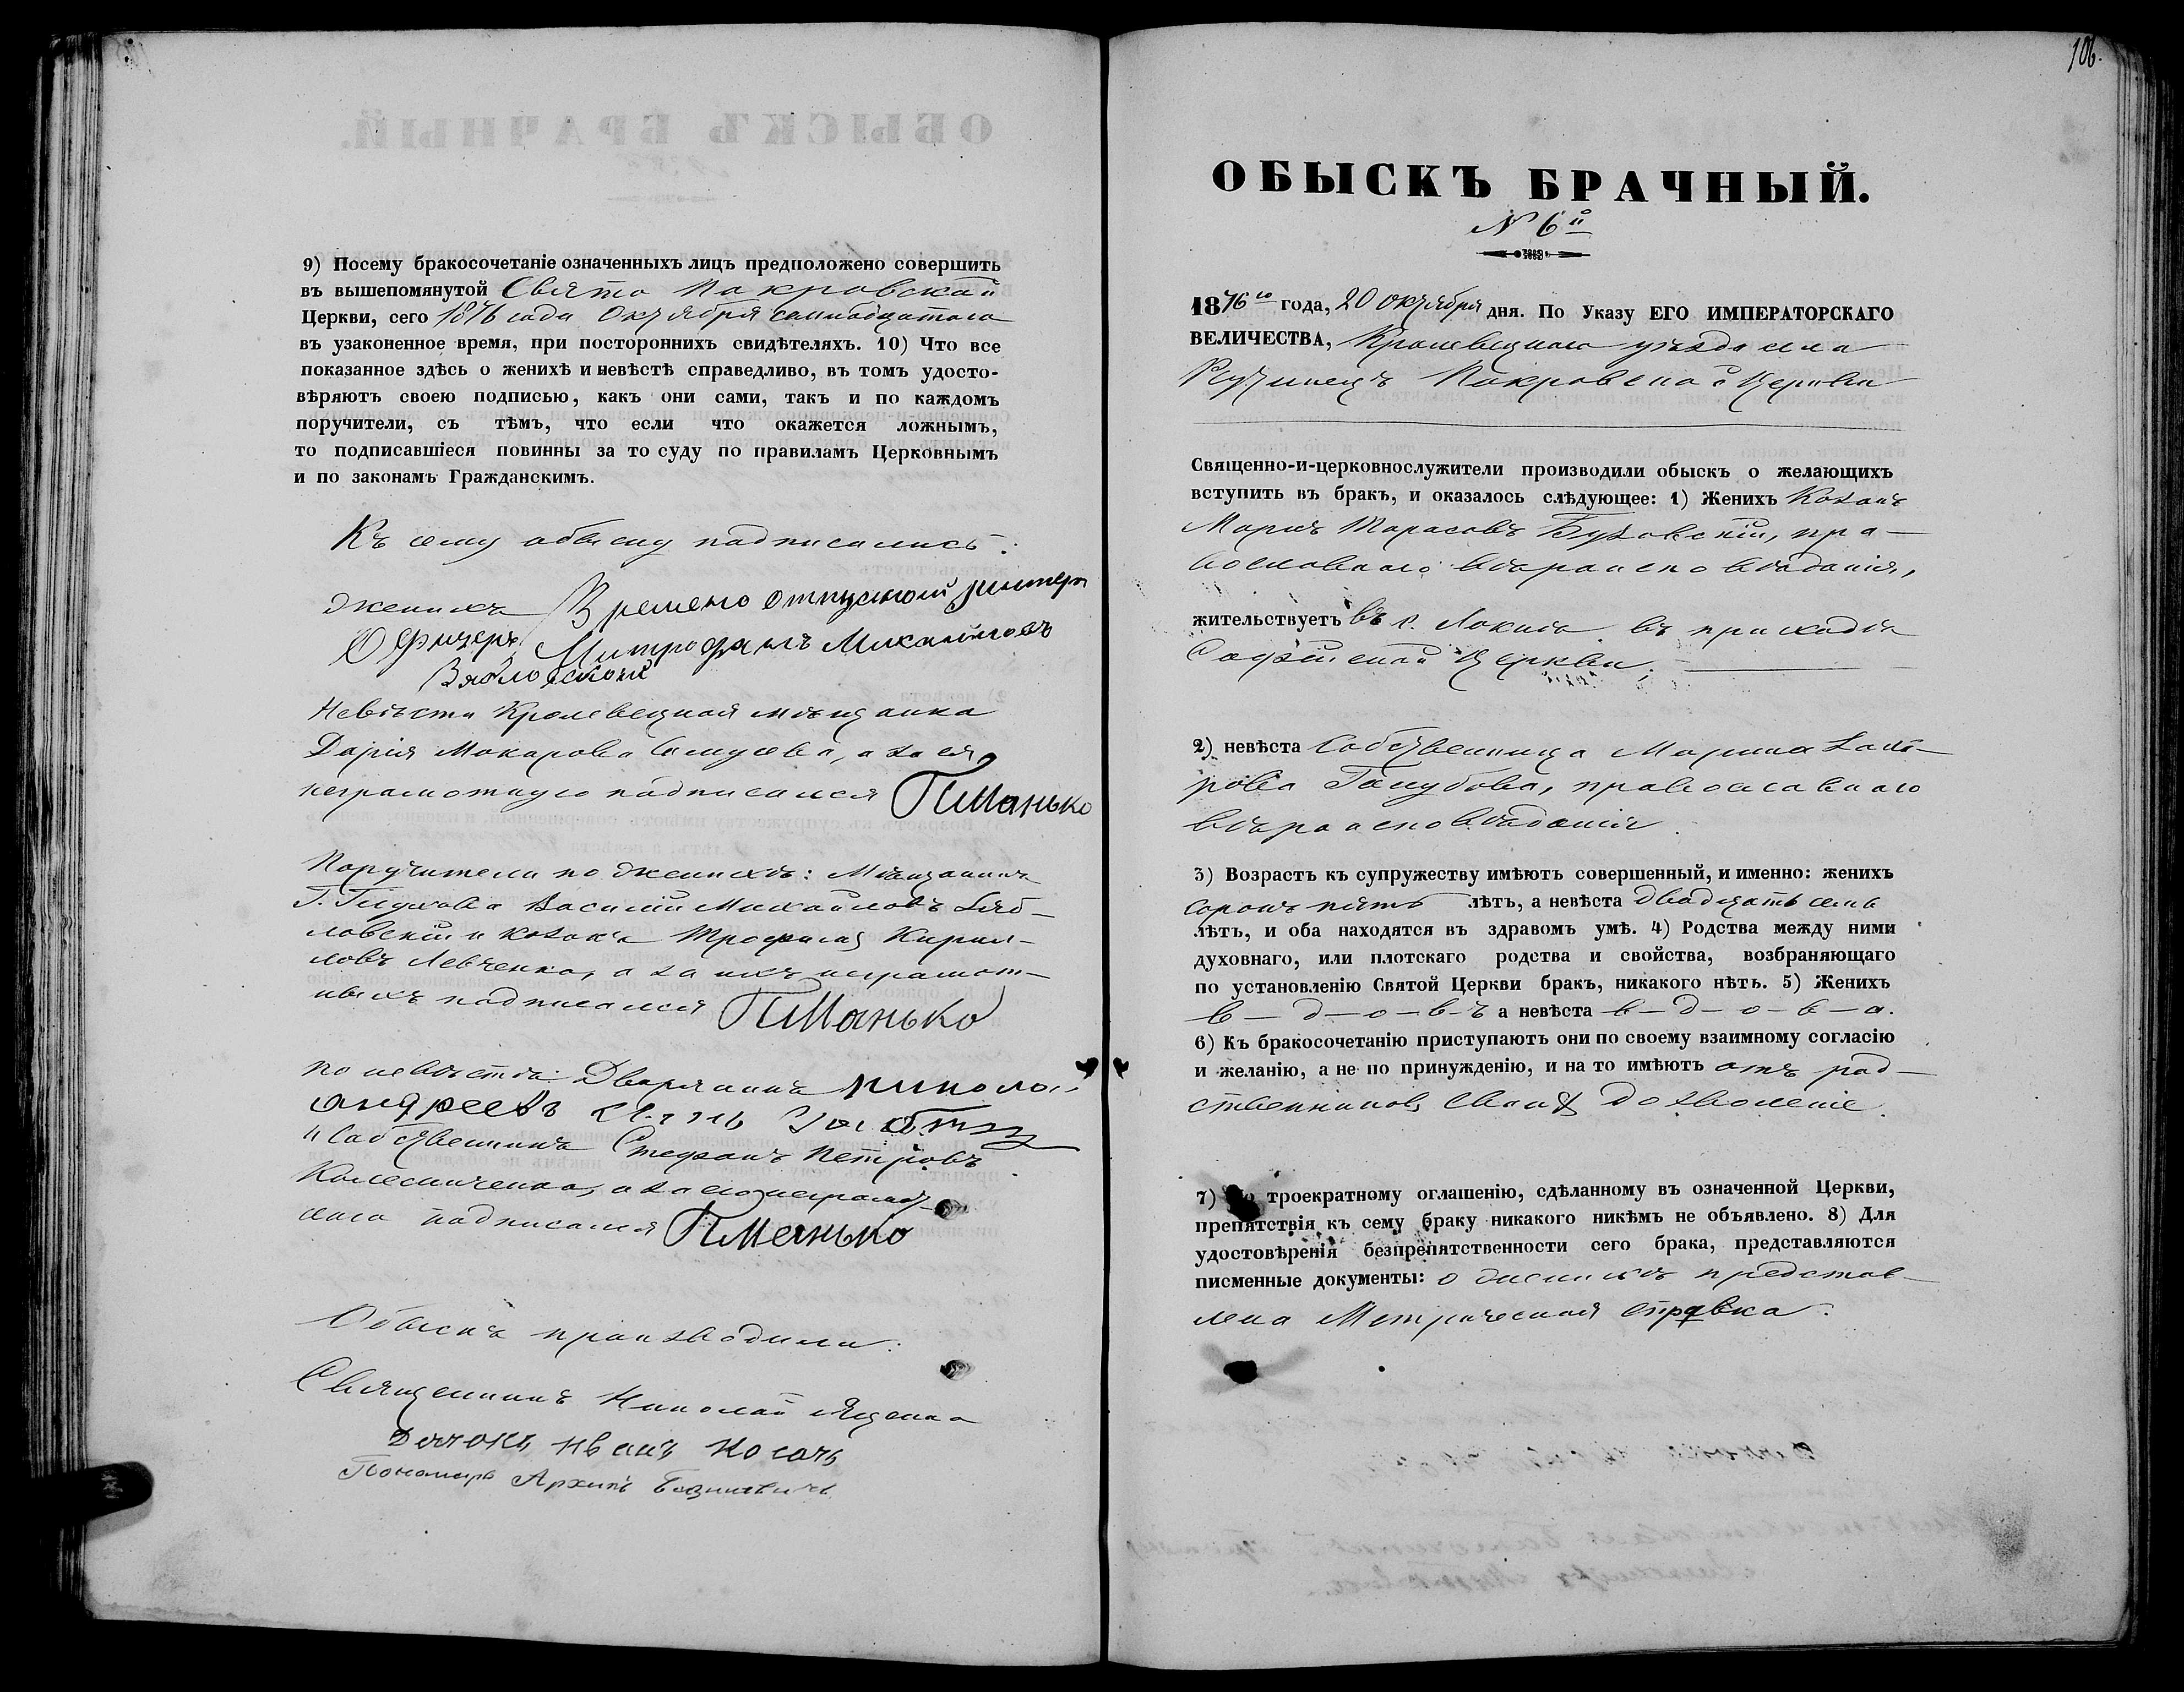 9) Посему бракосочетаніе означенныхъ лицъ предположено совершить
въ вышепомянутой Свято Покровской
Церкви, сего 1876 года Октября семнадцатаго
въ узаконенное время, при постороннихъ свидѣтеляхъ. 10) Что все
показанное здѣсь о женихѣ и невѣстѣ справедливо, въ томъ удосто-
вѣряютъ своею подписью, какъ они сами, такъ и по каждомъ
поручители, съ тѣмъ, что если что окажется ложнымъ,
то подписавшіеся повинны за то суду по правиламъ Церковнымъ
и по законамъ Гражданскимъ.
Къ сему обыску подписались:
женихъ Времено отпускной унтеръ
Офицеръ Митрофанъ Михайловъ
Невѣста Кролевецкая мѣщанка
Дарія Макарова а за ея
неграмотную подписался ПМанько
Поручители по женихѣ: Мѣщанинъ
Г. Глухова Василій Михайловъ
ловскій и козакъ Трофимъ Кирил-
ловъ Левченко, а за ихъ неграмот-
ныхъ подписался ПМанько
по невѣстѣ: Дворянинъ Николай
андреевъ
и Собственникъ Стефанъ Петровъ
Колесниченко, а за его неграмот-
наго подписался ПМанько
Обыскъ производили:
Священникъ Николай Яценко
Дьячокъ Иванъ Косачъ
Пономарь Архипъ
106.
ОБЫСКЪ БРАЧНЫЙ.
N 6й
1876го года, 20 октября дня. По Указу ЕГО ИМПЕРАТОРСКАГО
ВЕЛИЧЕСТВА, Кролевецкаго уѣзда села
Покровской Церкви
Священно-и-церковнослужители производили обыскъ о желающихъ
вступить въ бракъ, и оказалось слѣдующее: 1) Женихъ Козакъ
Маркъ Тарасовъ Бузовскій, пра-
вославнаго вѣроисповѣданія,
жительствуетъ въ с. Локнѣ въ приходѣ
Софійской Церкви,
2) невѣста Собственница Марина Заха-
рова Голубова, православнаго
вѣроисповѣданія.
3) Возрастъ къ супружеству имѣютъ совершенный, и именно: женихъ
сорокъ пять лѣтъ, а невѣста двадцать семь
лѣтъ, и оба находятся въ здравомъ умѣ. 4) Родства между ними
духовнаго, или плотскаго родства и свойства, возбраняющаго
по установленію Святой Церкви бракъ, никакого нѣтъ. 5) Женихъ
в—д—о—в—ъ а невѣста в—д—о—в—а.
6) Къ бракосочетанію приступаютъ они по своему взаимному согласію
и желанію, а не по принужденію, и на то имѣютъ отъ род-
ственниковъ своихъ дозволеніе.
7) По троекратному оглашенію, сдѣланному въ означенной Церкви,
препятствія къ сему браку никакого никѣмъ не объявлено. 8) Для
удостовѣренія безпрепятственности сего брака, представляются
писменные документы: о женихѣ представ-
лена Метрическая справка.